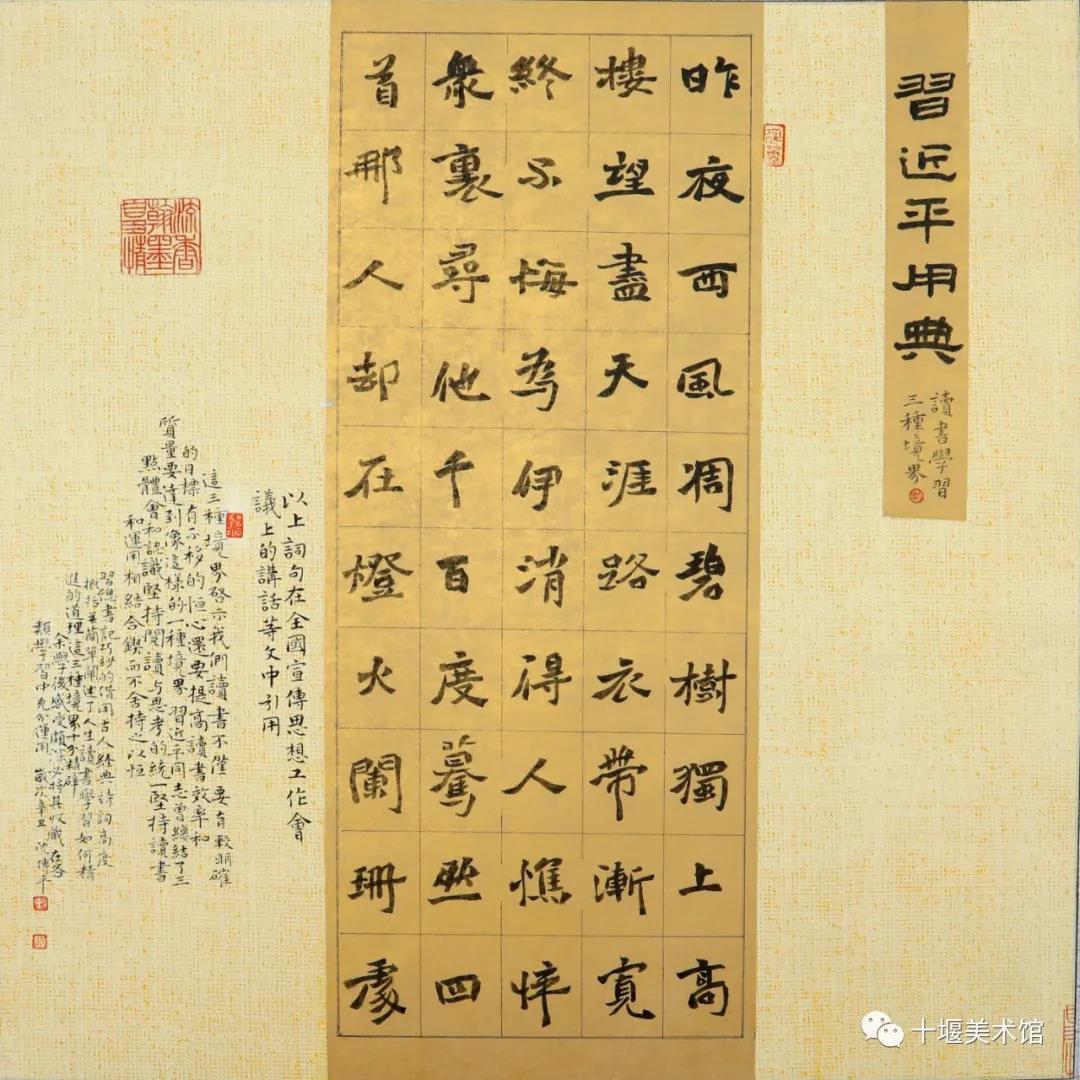 習近平用典
讀書學習
三種境界
昨夜西風凋碧樹獨上高
樓望盡天涯路衣帶漸寬
終不悔為伊消得人憔悴
衆裏尋他千百度驀然四
首那人却在燈火闌珊處
以上詞句在全國宣傳思想工作會
議上的講話等文中引用
這三種境界啓示我們讀書不僅要有較明確
的目標有不移的恒心還要提高讀書效率和
質量要達到像這樣的一種境界習近平同志曾總結了三
點體會和認識堅持閱讀与思考的統一堅持讀書
和運用相結合鍥而不舍持之以恒
習總書記巧妙的借用古人經典诗詞高度
概括并簡單闡述了人生讀書學習如何精
進的道理這三種境界十分精辟
余學後感受頗深必將其收藏在各
類學習中充分運用 歲次辛丑 沈傳平
流香
翰墨
十堰美术馆